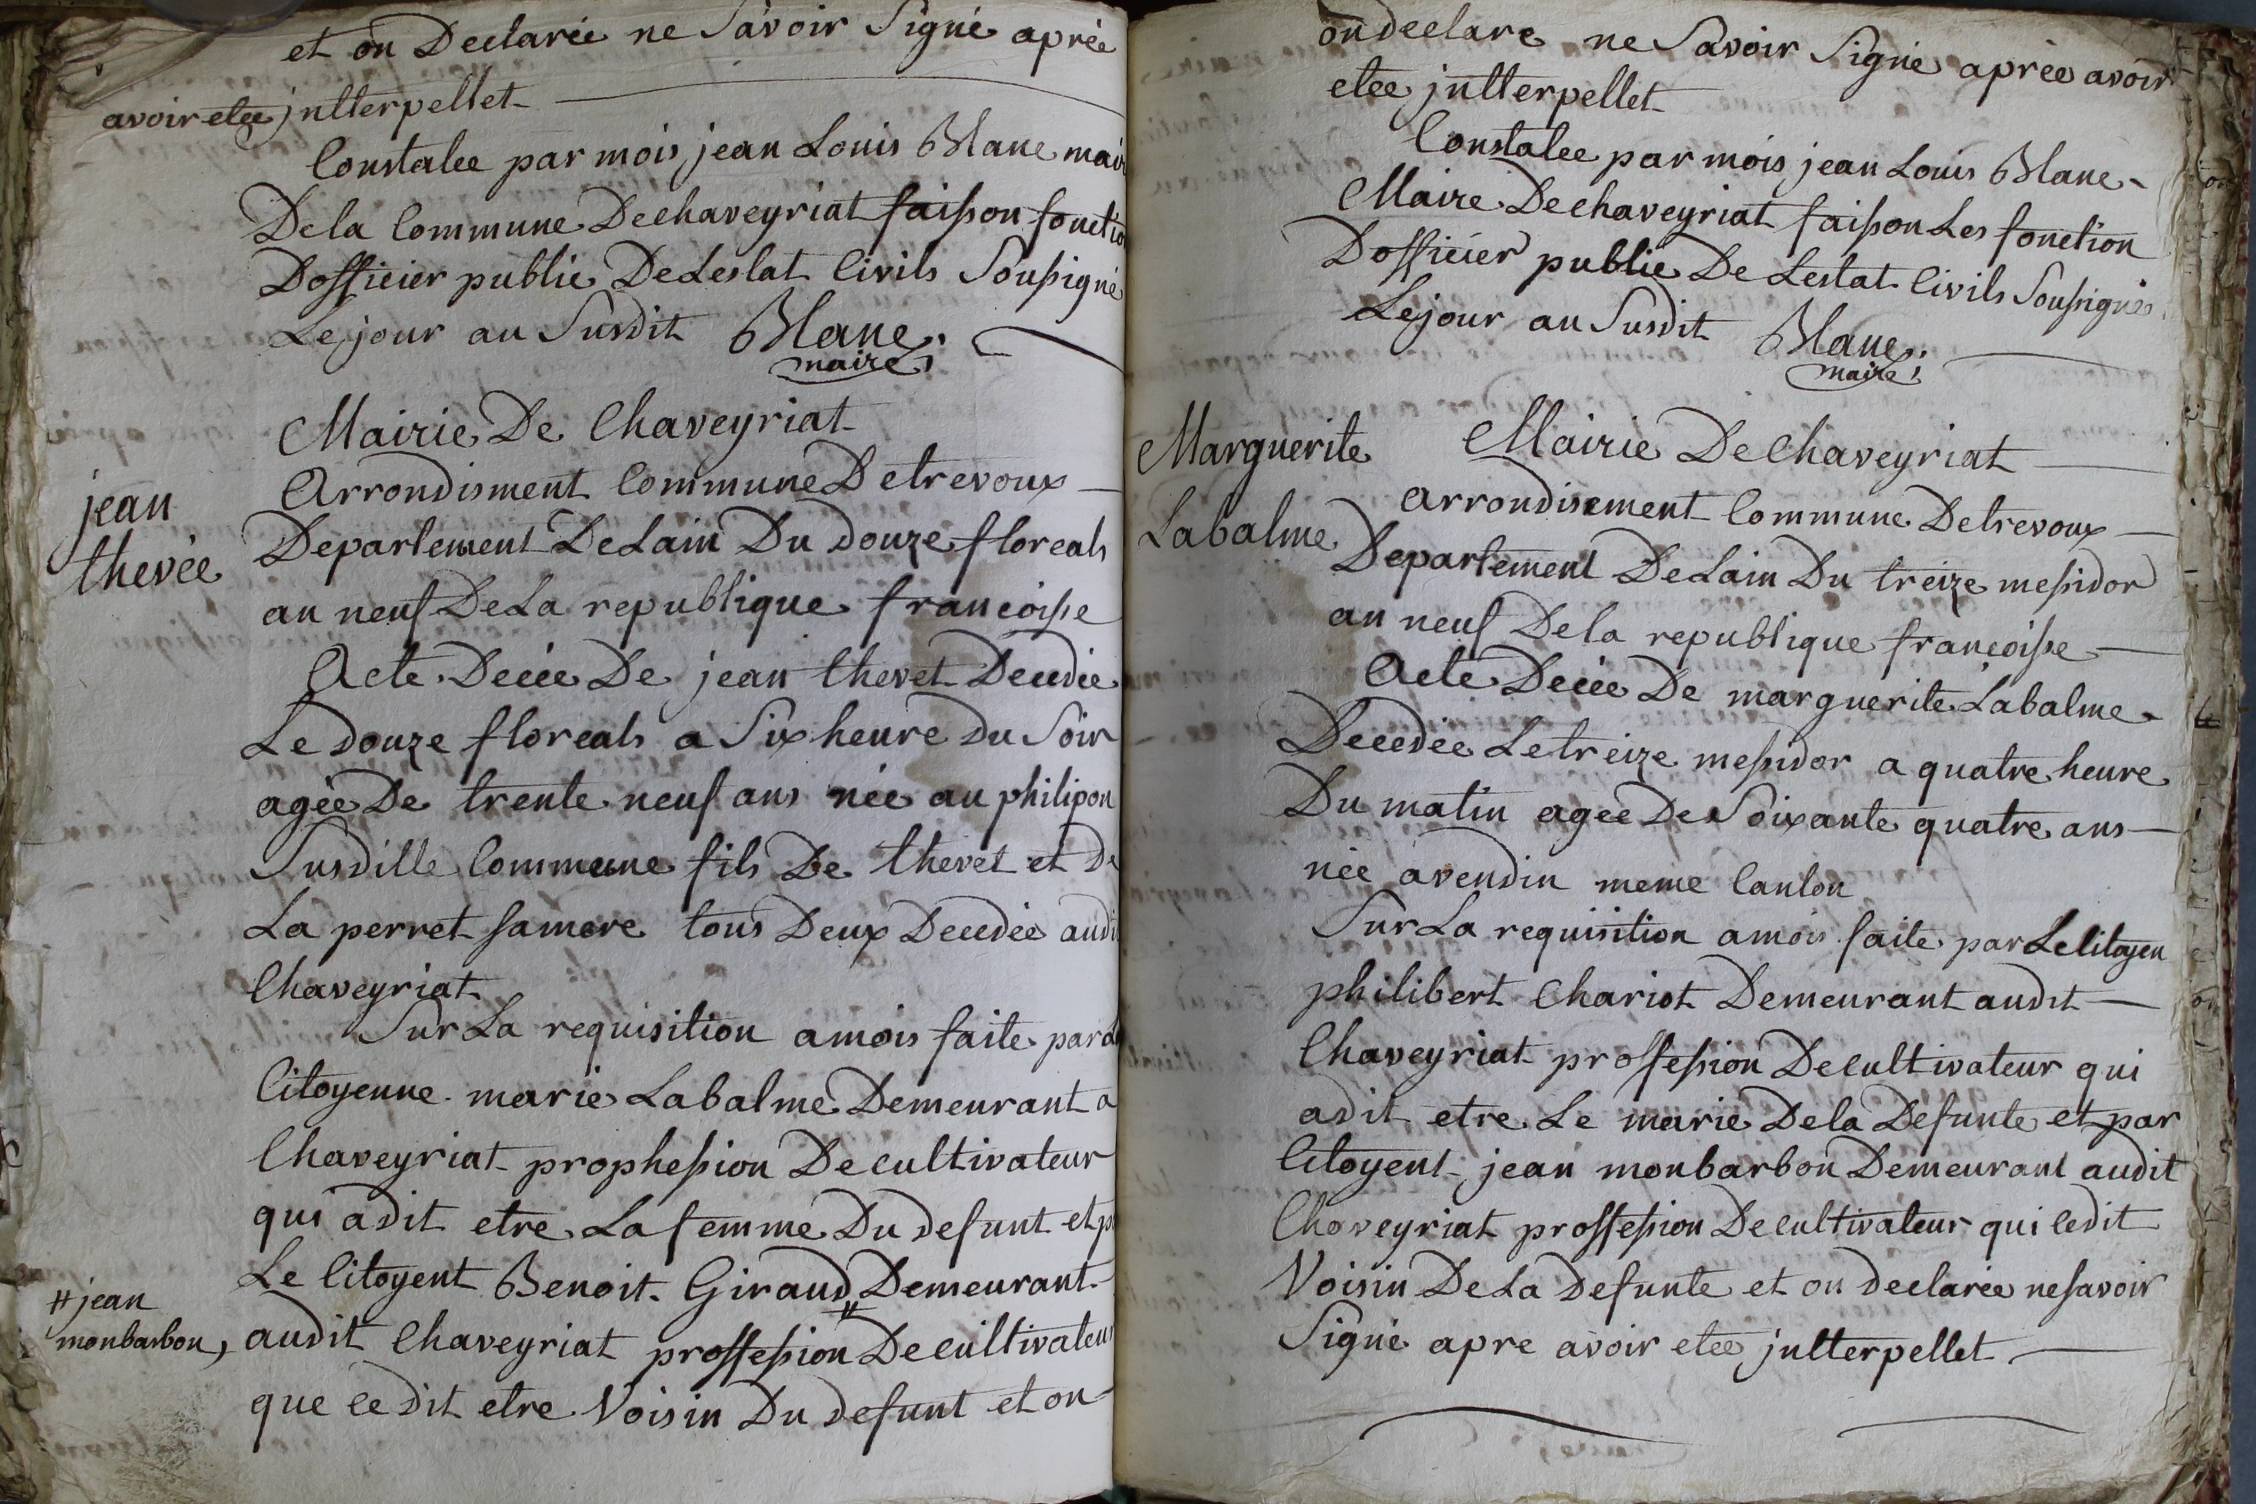 et on Declarée ne Savoir Signé aprée
avoir etee jntterpellet
Constatee par mois jean Louis Blanc mair
De la Commune De chaveyriat faisson fonctio
Dofficier public De Lestat Civils Soussigné
Le jour au Susdit Blanc
maire
Mairie De Chaveyriat
Arrondisment Commune De trevoux
jean
thevée
Departement De Lain Du douze floreals
an neuf De La republique francoisse
Acte Decée De jean thevet Decedée
Le douze floreals a Six heure Du Soir
agée De trente neuf ans née au philipon
Susditte Commune fils De thevet et De
La perret sa mere tous Deux Decedée audi
Chaveyriat
Sur La requisition a mois faite par La
Citoyenne marie Labalme Demeurant a
Chaveyriat prophession De cultivateur
qui a dit etre La femme Du defunt et p
Le Citoyent Benoit Giraud Demeurant
# jean
monbarbon,
audit Chaveyriat proffession # De cultivateur
que ce dit etre Voisin Du defunt et on
on declare ne Savoir Signé aprée avoir
etee jntterpellet
Constatee par mois jean Louis Blanc
Maire De chaveyriat faisson Les fonction
Dofficier public De Lestat Civils Soussignés
Le jour au Susdit Blanc
maire
Marguerite
Labalme
Mairie De Chaveyriat
arrondisement Commune De trevoux
Departement De Lain Du treize messidor
an neuf De la republique francoisse
Acte Decée De marguerite Labalme
Decedée Le treize messidor a quatre heure
Du matin agée De Soixante quatre ans
née a vendin meme Canton
Sur La requisition a mois faite par Le Citoyen
philibert Chariot Demeurant audit
Chaveyriat proffession De cultivateur qui
a dit etre Le marie De la Defunte et par
Citoyent jean monbarbon Demeurant audit
Chaveyriat proffession De cultivateur qui ce dit
Voisin De La Defunte et on declarée ne savoir
Signé apre avoir etee jntterpellet